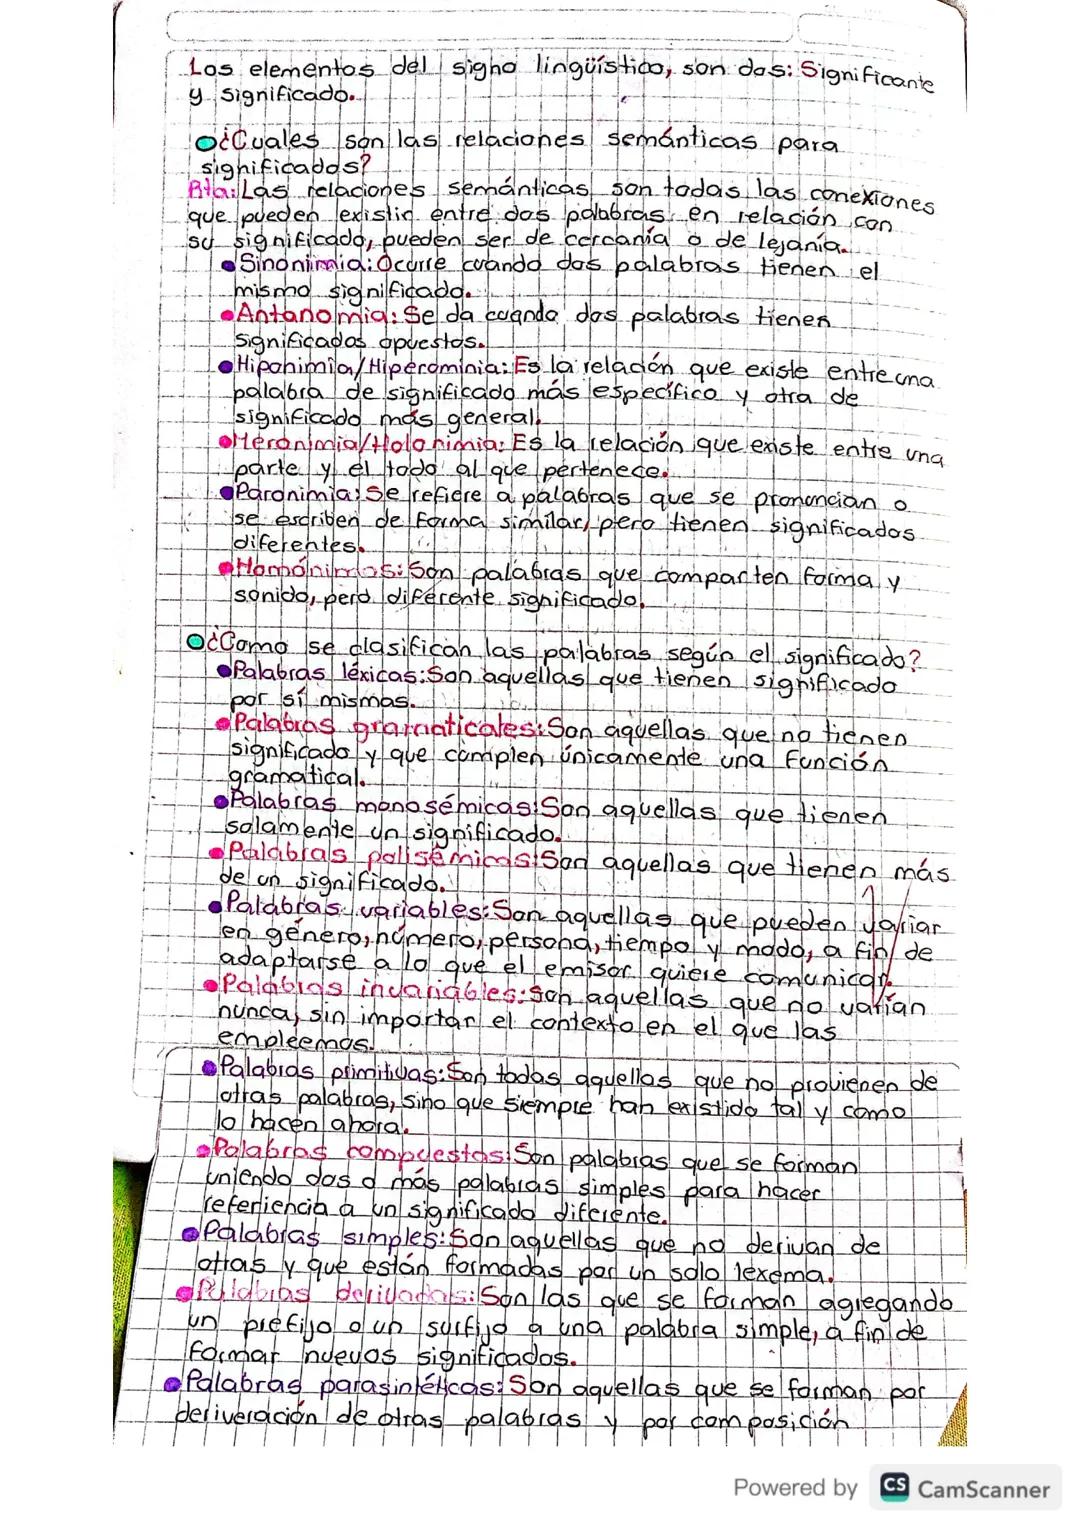 Los elementos del signo lingüístico, son dos: Significante
y significado.
¿Cuales son las relaciones semánticas para
significados?
Rta: Las relaciones semánticas son todas las conexiones
que pueden existir entre dos palabras en relación con
su significado, pueden ser de cercanía o de lejanía.
Sinonimia: Ocurre cuando dos palabras tienen el
mismo significado.
Antanomia: Se da cuando dos palabras tienen
significados opuestos.
Hiponimia/Hiperominia: Es la relación que existe entre una
palabra de significado más específico y otra de
significado más general.
Meronimia/Holonimia: Es la relación que existe entre una
parte y el todo al que pertenece.
Paronimia: Se refiere a palabras que se pronuncian o
se escriben de forma similar, pero tienen significados
diferentes.
Homónimos: Son palabras que comparten forma y
sonido, pero diferente significado.
¿Como se clasifican las palabras según el significado?
Palabras léxicas: Son aquellas que tienen significado
por sí mismas.
Palabras gramaticales: Son aquellas que no tienen
significado y que cumplen únicamente una función
gramatical.
Palabras monosémicas: Son aquellas que tienen
solamente un significado.
Palabras polisémicas: Son aquellas que tienen más
de un significado.
Palabras variables: Son aquellas que pueden variar
en género, número, persona, tiempo y modo, a fin de
adaptarse a lo que el emisor quiere comunicar.
Palabras invariables: Son aquellas que no varían
nunca, sin importar el contexto en el que las
empleemos.
Palabras primitivas: Son todas aquellas que no provienen de
otras palabras, sino que siempre han existido tal y como
lo hacen ahora.
Palabras compuestas: Son palabras que se forman
uniendo dos o más palabras simples para hacer
referencia a un significado diferente.
Palabras simples: Son aquellas que no derivan de
otras y que están formadas por un solo lexema.
Palabras derivadas: Son las que se forman agregando
un prefijo o un surfijo a una palabra simple, a fin de
formar nuevos significados.
Palabras parasintéticas: Son aquellas que se forman por
deriveración de otras palabras y por composición
Powered by CS CamScanner